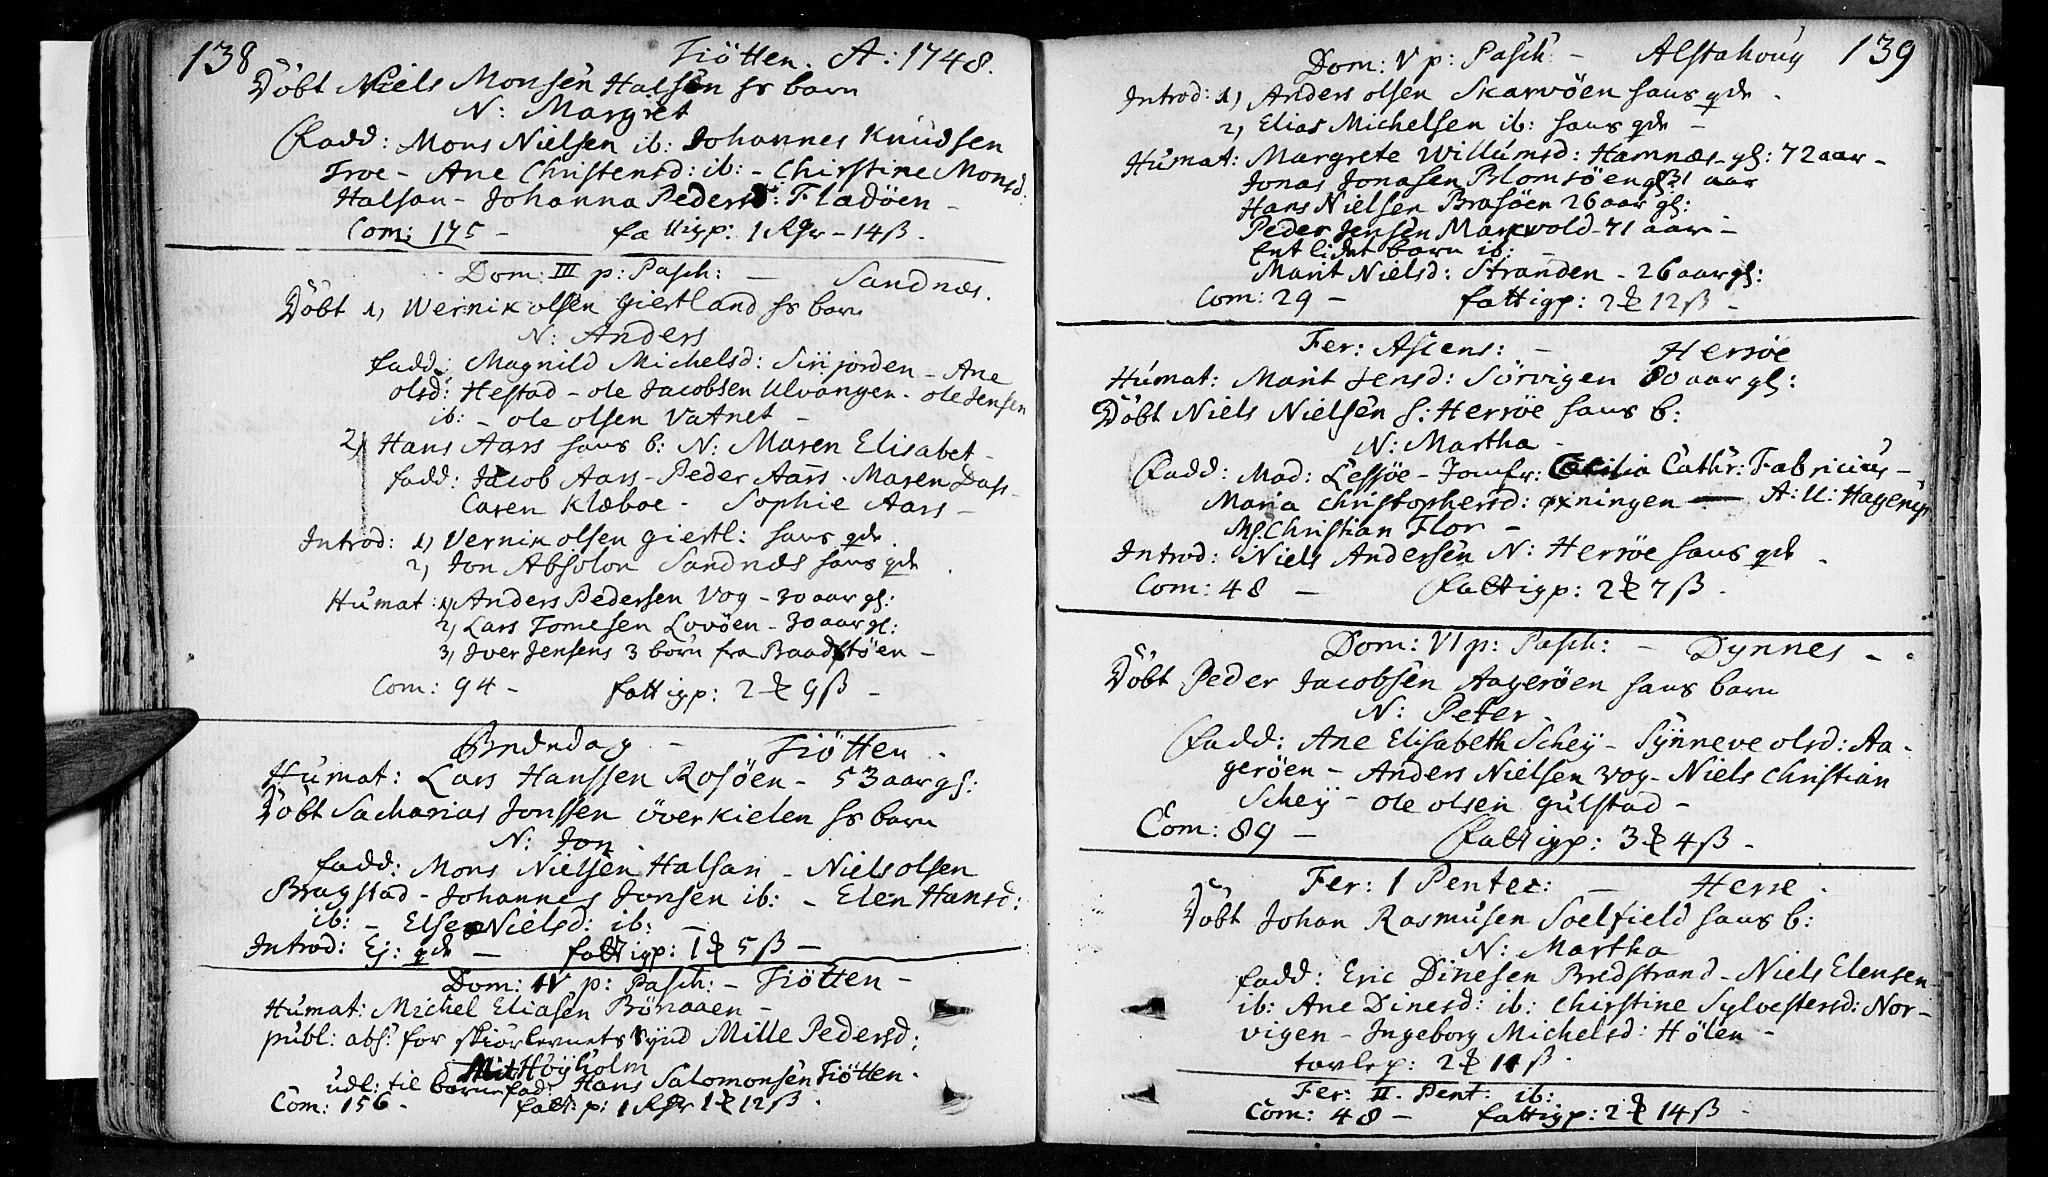 138 Tiötten. A: 1748.
Döbt Niels Monsen Halsen hs barn
N: Margret
Fadd: Mons Nielsen ib: Johannes Knudsen
Troe - Ane Christensd: ib: - Chirstine Monsd:
Halsan - Johanna Pedersd: Fladöen -
Com: 175 - fattigp: 1 Rdr - 14 ß.
Dom: III p: Pasch: - Sandnæs.
Döbt 1, Wernik olsen Giertland hs barn
N: Anders
fadd: Magnild Michelsd: - Ane
olsd: Hestad - ole Jacobsen Ulvangen - ole Jensen
ib: - ole olsen Vatnet -
2, Hans Aars hans b: N: Maren Elisabet -
fadd: Jacob Aars - Peder Aars - Maren Dass -
Caren Klæboe - Sophie Aars -
Introd: 1, Vernik olsen Giertl: hans qde.
2, Jon Absolon Sandnæs hans qde.
Humat: 1, Anders Pedersen Vog - 30 aar gl:
2, Lars Tomesen Lovöen - 30 aar gl:
3, Iver Jensens 3 börn fra Baadstöen -
Com: 94 - fattigp: 2 ₻ 9 ß -
Bededag - Tiötten.
Humat: Lars Hanssen Rosöen - 53 aar gl:
Döbt Sacharias Jonssen överkielen hs barn
N: Jon.
fadd: Mons Nielsen Halsan - Niels olsen
Bragstad - Johannes Jonsen ib: - Elen Hansd:
ib: - Else Nielsd: ib: -
Introd: Ej: qde - fattigp: 1 ₻ 5 ß -
Dom: IV p: Pasch: - Tiötten -
Humat: Michel Eliasen Bönaaen -
publ: abs: for skiörlevnets synd Mille Pedersd:
Höyholm
udl: til barnefad: Hans Salomonsen Tiötten.
Com: 156 - fatt: p: 1 Rdr 1 ₻ 12 ß.
Dom: V p: Pasch: - Alstahoug 139
Introd: 1, Anders olsen Skarvöen hans qde.
2, Elias Michelsen ib: hans qde -
Humat: Margrete Willumsd: Hamnæs - gl: 72 aar -
Jonas Jonasen Blomsöen gl: 31 aar
Hans Nielsen Brasöen 26 aar gl:
Peder Jensen Markvold - 71 aar -
Ent lidet barn ib:
Marit Nielsd: Stranden - 26 aar gl:
Com: 29 - fattigp: 2 ₻ 12 ß -
Fer: Ascens: - Herröe
Humat: Marit Jensd: Sörvigen 80 aar gl:
Döbt Niels Nielsen S: Herröe hans b:
N: Martha -
Fadd: Mad: Lessöe - Jomfr: Cecilia Cathr: Fabricius -
Maria Christophersd: öxningen - A: U: Hagerup
Ms. Christian Flor -
Introd: Niels Andersen N: Herröe hans qde.
Com: 48 - Fattigp: 2 ₻ 7 ß.
Dom: VI p: Pasch: - Dynnes -
Döbt Peder Jacobsen Aageröen hans barn
N: Peter.
Fadd: Ane Elisabeth Scheÿ - Synneve olsd: Aa-
geröen - Anders Nielsen Vog - Niels Christian
Scheÿ - ole olsen Gulstad -
Com: 89 - Fattigp: 3 ₻ 4 ß -
Fer: 1 Pentec: - Herre.
Döbt Johan Rasmusen Soelfield hans b:
N: Martha
fadd: Eric Dinesen Bredstrand - Niels Elensen
ib: Ane Dinesd: ib: Chirstine Sylvestersd: Nor-
vigen - Ingeborg Michelsd: Hölen -
tavlep: 2 ₻ 11 ß.
Fer: II. Pent: ib:
Com: 48 - fattigp: 2 ₻ 14 ß -